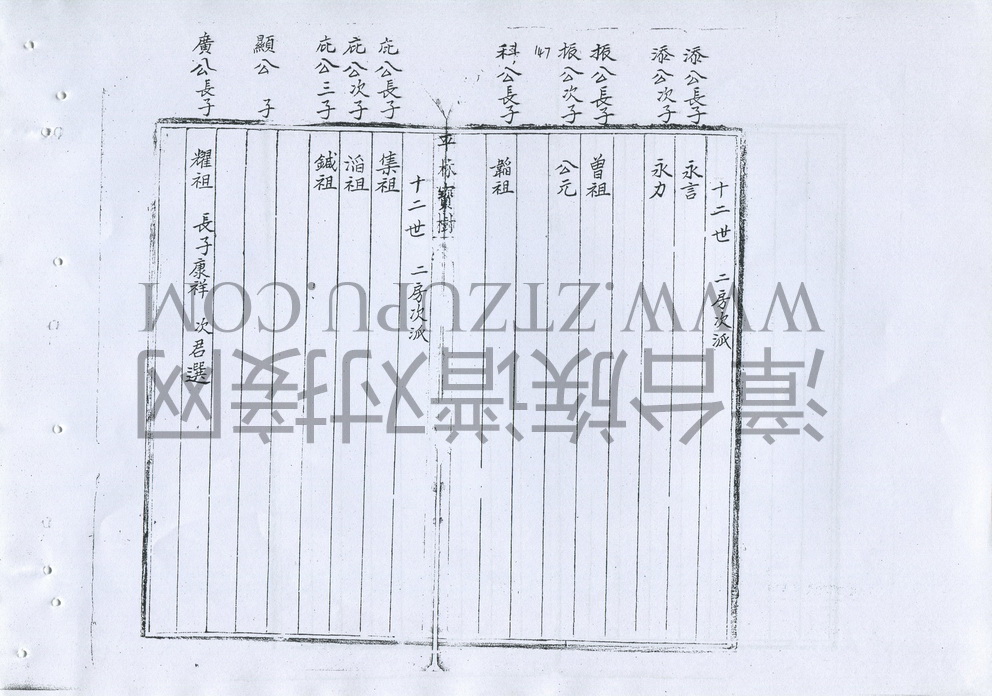 十二世 二房次派
添公長子 永言
添公次子 永力
振公長子 曾祖
振公次子 公元
147
科公長子 韜祖
寶樹
十二世 二房次派
庇公長子 集祖
庇公次子 滔祖
庇公三子 鍼祖
顯公 子
廣公長子 耀祖 長子康祥 次君選
WWW.ZTZUPU.COM
漳台族谱对接网